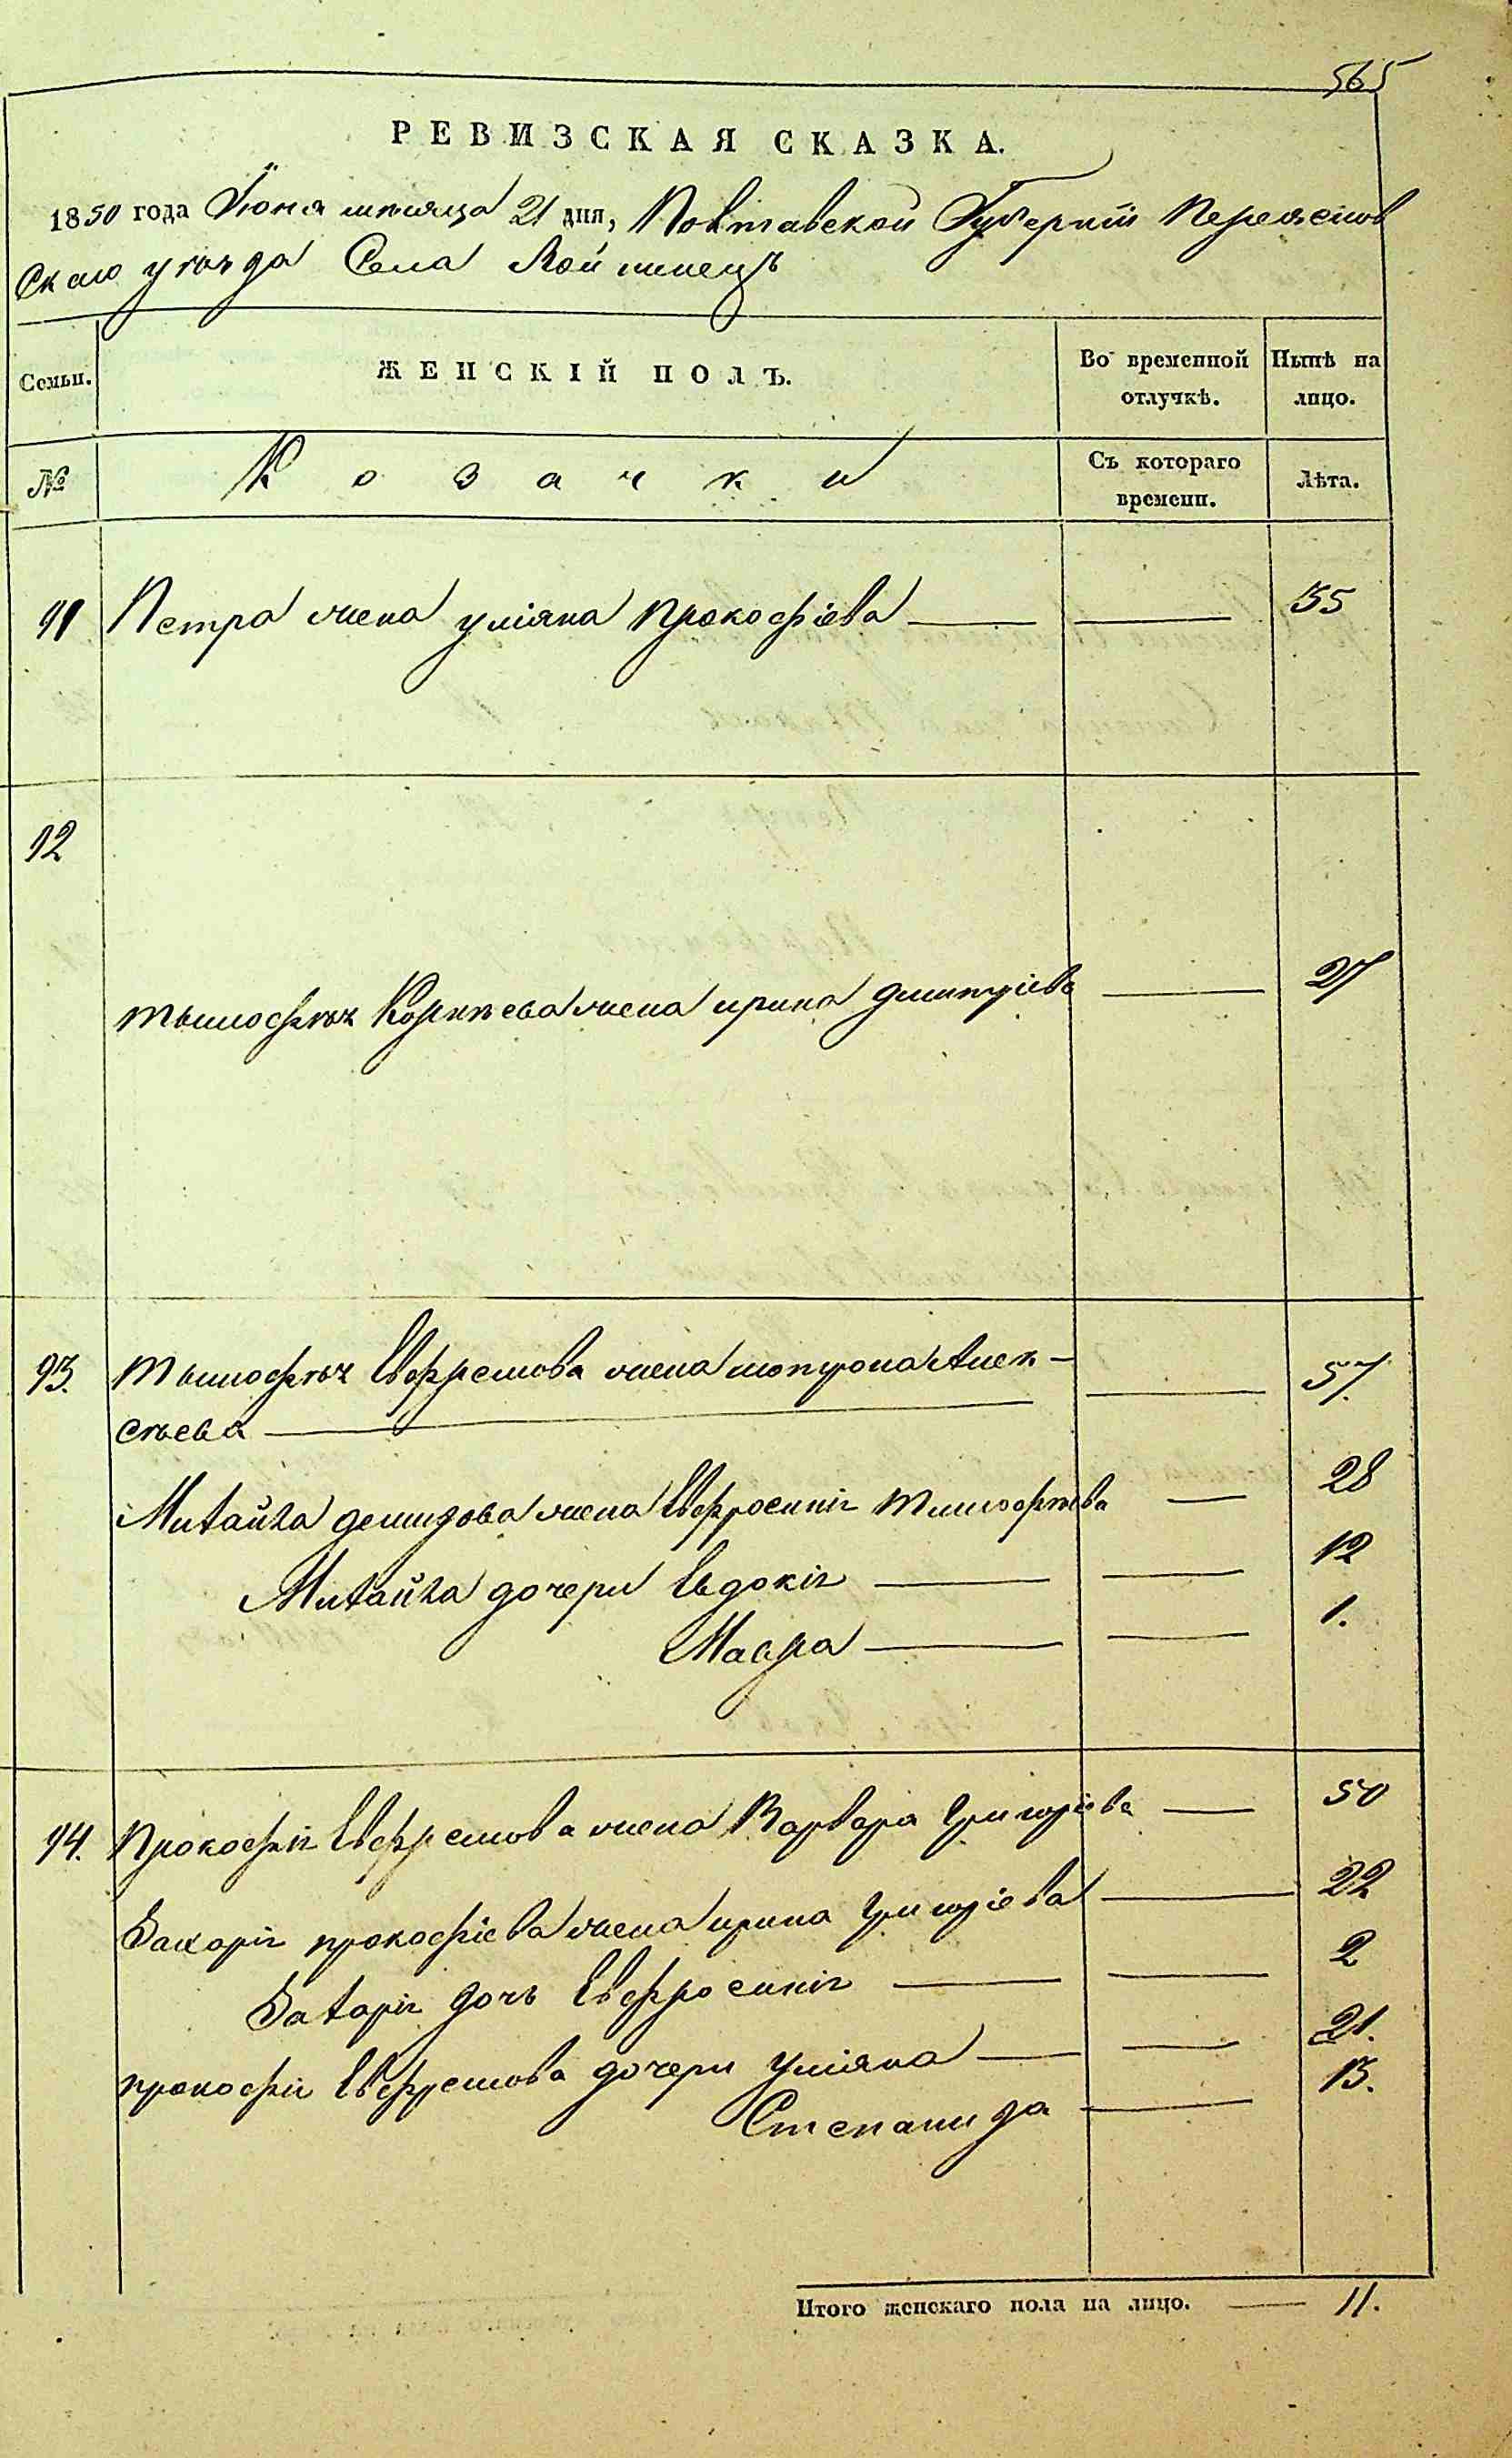 565
РЕВИЗСКАЯ СКАЗКА.
1850 года Іюня мѣсяца 21 дня, Полтавской Губерніи Переяслов
скаго уѣзда Села Войтовецъ
Семьи. ЖЕНСКІЙ ПОЛЪ. Во временной отлучкѣ. Нынѣ на лицо.
№ Козачки Съ котораго времени. Лѣта.
91 Петра жена уліяна Прокофіева 55
92
тымофѣя жена ирина дмитріева 27
93. тымофѣя Евфремова жена мотрона Алек-
сѣева 57.
Михайла демидова жена Евфросинія тимофѣева 28
Михайла дочери Евдокія 12
Мавра 1.
94. Прокофія Евфремова жена Варвара Григоріева 50
Захарія прокофіева жена ирина Григоріева 22
Захарія дочь Евфросинія 2
прокофія Евфремова дочери уліяна 21.
Степанида 13.
Итого женскаго пола на лицо. 11.